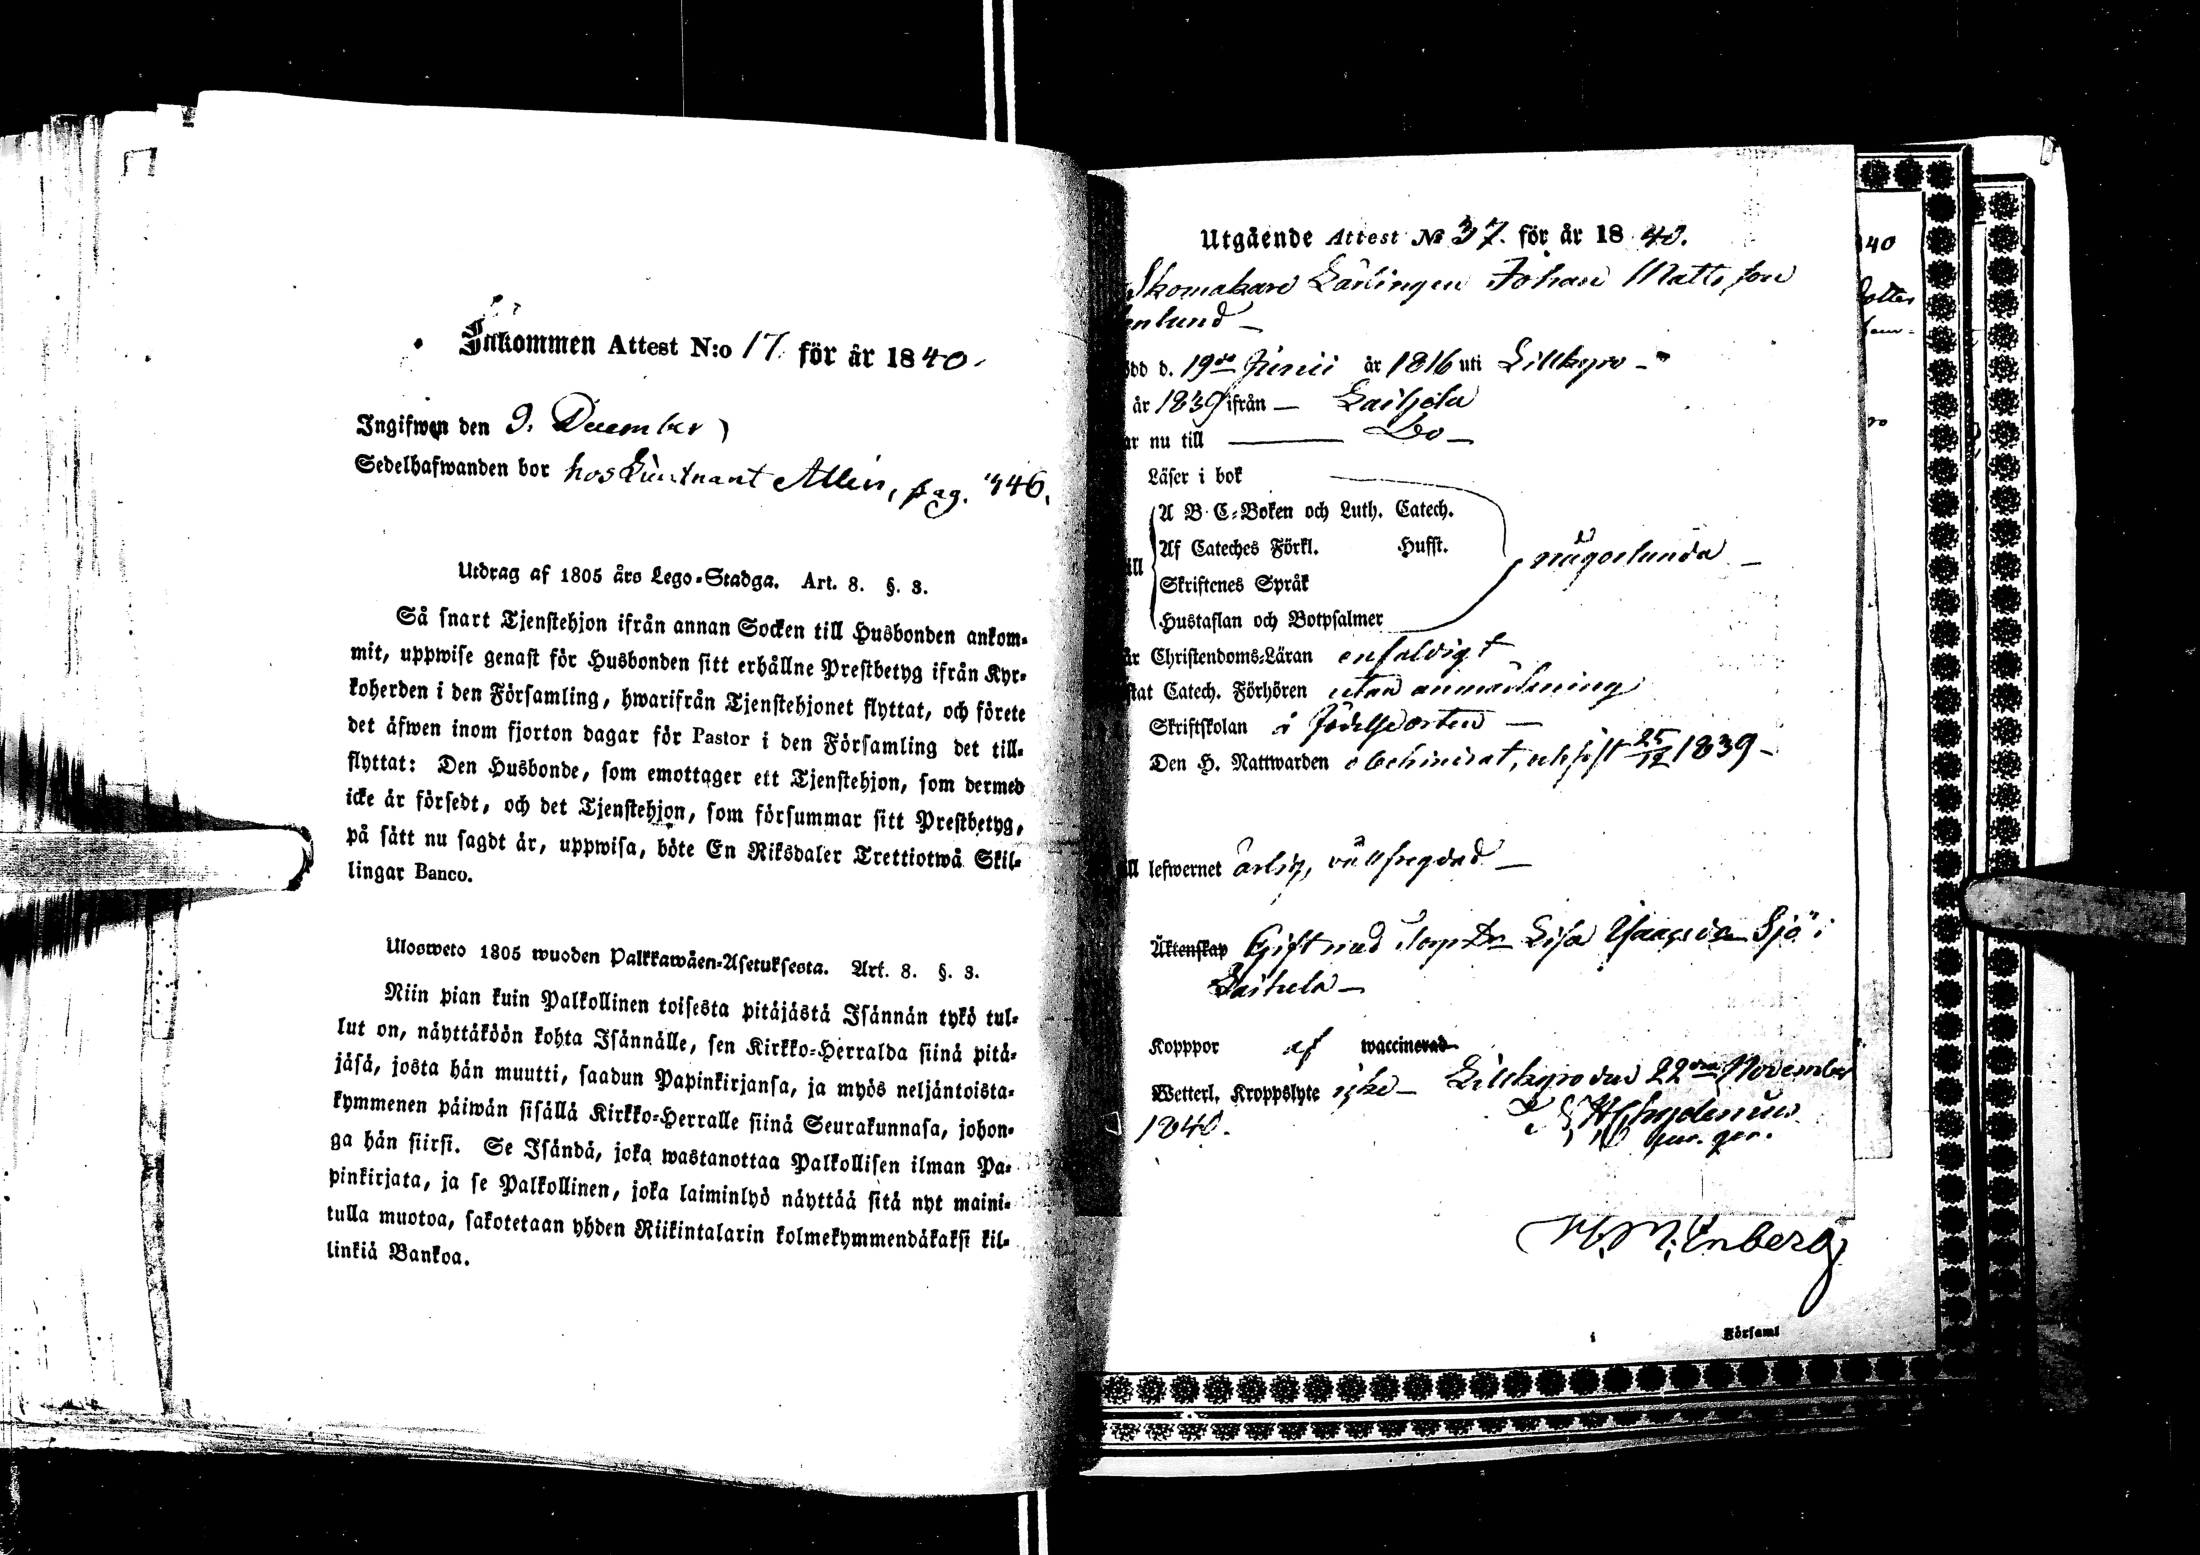 Inkommen Attest N:o 17. för år 1840.
Ingifwen den 9. December
Sedelhafwanden bor hos Lieutnant Allén, pag. 446.
Utdrag af 1805 års Lego-Stadga. Art. 8. §. 3.
Så snart Tjenstehjon ifrån annan Socken till Husbonden ankom-
mit, uppwise genast för Husbonden sitt erhållne Prestbetyg ifrån Kyr-
koherden i den Församling, hwarifrån Tjenstehjonet flyttat, och förete
det äfwen inom fjorton dagar för Pastor i den Församling det till-
flyttat: Den Husbonde, som emottager ett Tjenstehjon, som dermed
icke är försedt, och det Tjenstehjon, som försummar sitt Prestbetyg,
på sätt nu sagdt är, uppwisa, böte En Riksdaler Trettiotwå Skil-
lingar Banco.
Ulosweto 1805 wuoden Palkkawäen-Asetuksesta. Art. 8. §. 3.
Niin pian kuin Palkollinen toisesta pitäjästä Isännän tykö tul-
lut on, näyttäköön kohta Isännälle, sen Kirkko-Herralda siinä pitä-
jäsä, josta hän muutti, saadun Papinkirjansa, ja myös neljäntoista-
kymmenen päiwän sisällä Kirkko-Herralle siinä Seurakunnasa, johon-
ga hän siirsi. Se Isändä, joka wastanottaa Palkollisen ilman Pa-
pinkirjata, ja se Palkollinen, joka laiminlyö näyttää sitä nyt maini-
tulla muotoa, sakotetaan yhden Riikintalarin kolmekymmendäkaksi kil-
linkiä Bankoa.
Utgående Attest No 37. för år 1840.
Skomakare Lärlingen Johan Matts son
enlund
ödd d. 19de Junii år 1816 uti Lillkyro
år 1839 ifrån Laihela
ar nu till Do
Läser i bok
A B C-Boken och Luth. Catech.
Af Cateches Förkl. Hufst.
ill någorlunda
Skriftenes Språk
Hustaflan och Botpsalmer
år Christendoms-Läran enfaldigt
stat Catech. Förhören utan anmärkning
Skriftskolan å födelseorten
Den H. Nattwarden obehindrat, sist 25/12 1839
ill lefwernet ärlig, välfregdad
Äktenskap Gift med Lisa Sjö i
Laihela
Kopppor af waccinerad
Wetterl. Kroppslyte icke Lillkyro den 22dra November
1840. Chydenius
H. M. Enberg
i Församl
40